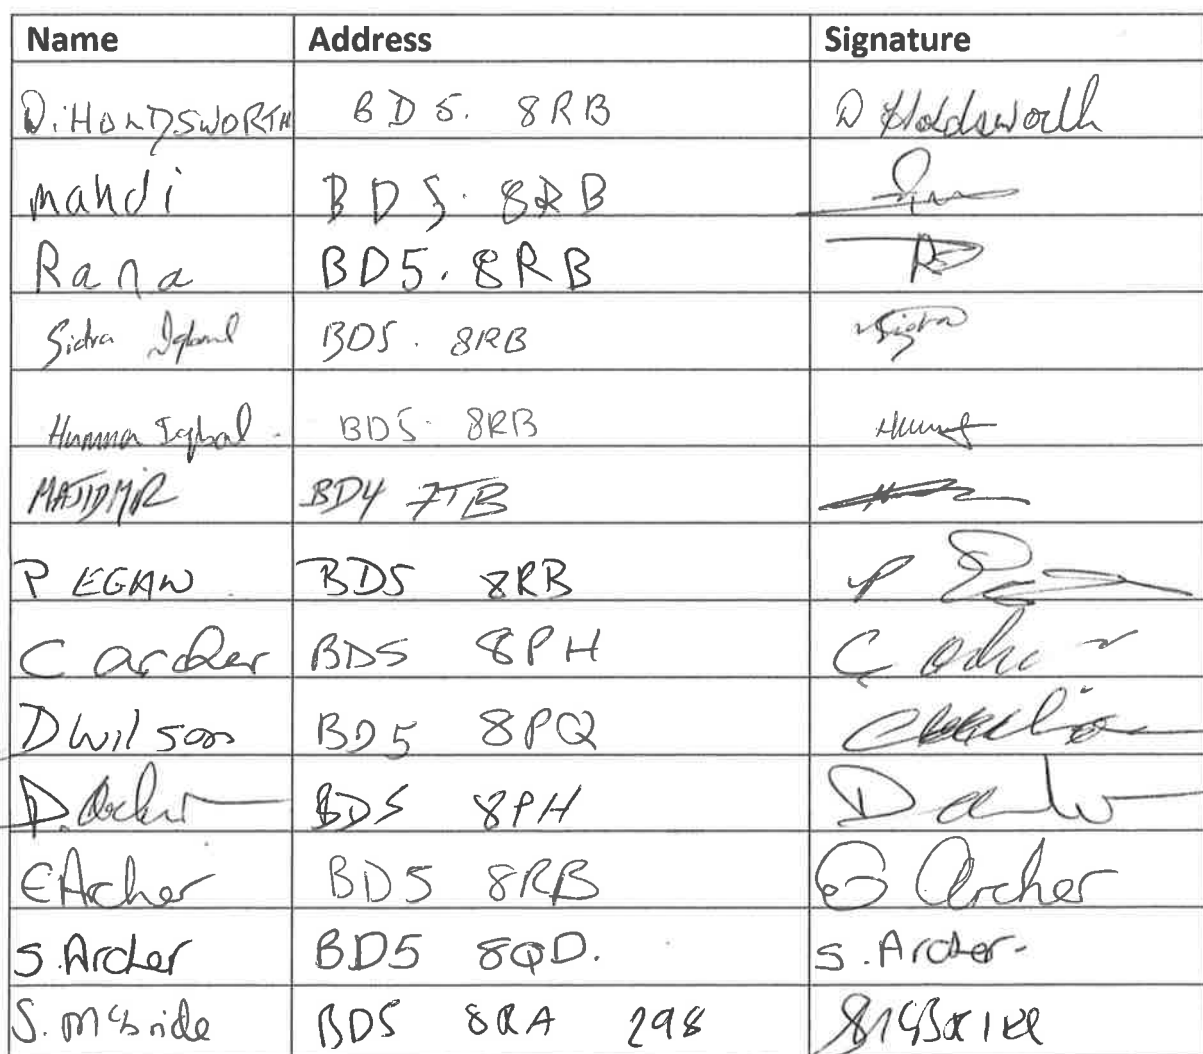 Name Address Signature
D. HOLDSWORTH BD5. 8RB D Holdsworth
Mahdi BD5. 8RB
Rana BD5. 8RB
Sidra Iqbal BD5. 8RB Sidra
Humma Iqbal BD5. 8RB
MAJID MIR BD4 7TB
P EGAN BD5 8RB P
C archer BD5 8PH C
D Wilson BD5 8PQ
D. Archer BD5 8PH D
E Archer BD5 8RB E Archer
S. Archer BD5 8QD. S. Archer
S. McBride BD5 8RA 298 S McBride